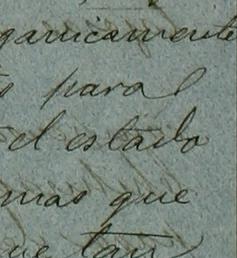 ganicamente
s para
el estado
mas que
que tan